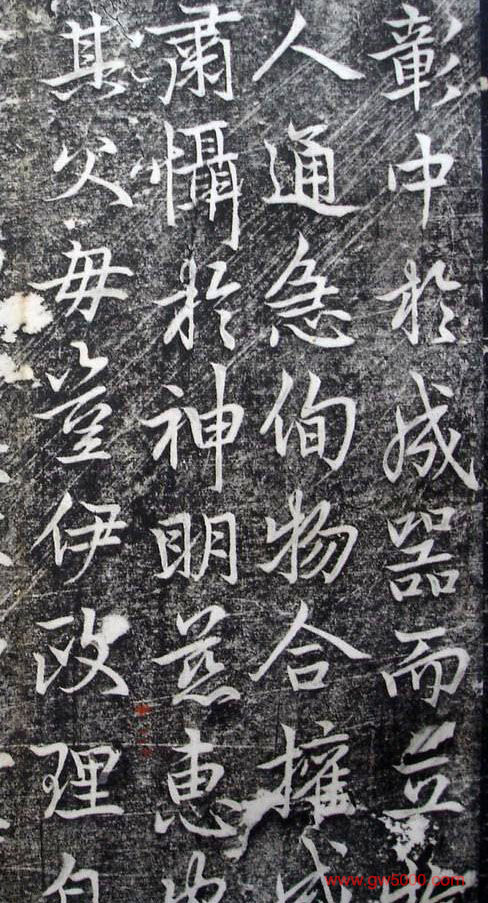 彰中於成器而立
人通急侚物合權
肅懾於神明慈惠
其父毋豈伊政理自
www.gw5000.com